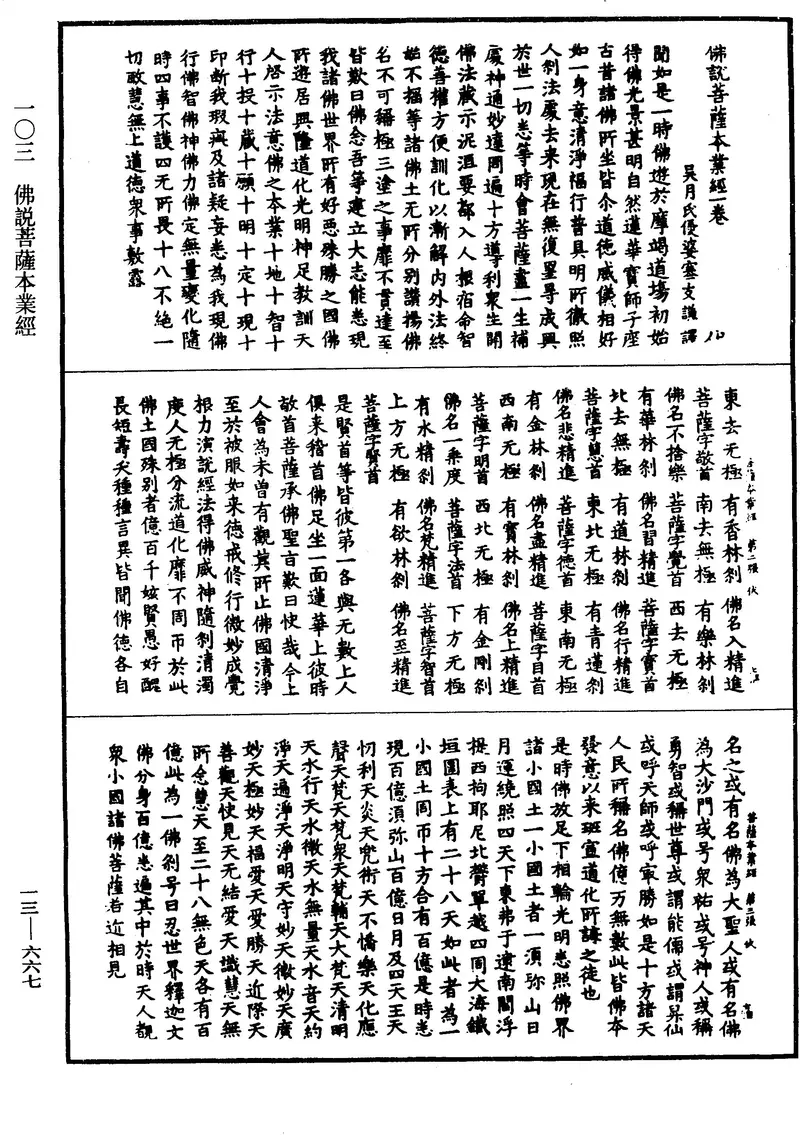 佛說菩薩本業經一卷
吳月氏優婆塞支謙譯
聞如是一時佛遊於摩竭道場初始
得佛光景甚明自然蓮華寶師子座
古昔諸佛所坐皆尒道德威儀相好
如一身意清淨福行普具明所徹照
人剎法處去來現在無復罣㝵成興
於世一切悉等時會菩薩盡一生補
處神通妙達周遍十方導利衆生開
佛法藏示泥洹要都入人根宿命智
德善權方便訓化以漸解内外法終
始不揺等諸佛土无所分別讚揚佛
名不可稱極三塗之事靡不貫達至
皆歎曰佛念吾等建立大志能悉現
我諸佛世界所有好惡殊勝之國佛
所遊居興隆道化光明神足教訓天
人啓示法意佛之本業十地十智十
行十投十藏十願十明十定十現十
印斷我瑕疵及諸疑妄悉為我現佛
行佛智佛神佛力佛定無量變化隨
時四事不護四无所畏十八不絶一
切敏慧無上道德衆事敷露
東去无極 有香林剎 佛名入精進
菩薩字敬首 南去無極 有樂林剎
佛名不捨樂 菩薩字覺首 西去无極
有華林剎 佛名習精進 菩薩字寶首
北去無極 有道林剎 佛名行精進
菩薩字慧首 東北无極 有青蓮剎
佛名悲精進 菩薩字德首 東南无極
有金林剎 佛名盡精進 菩薩字目首
西南无極 有寶林剎 佛名上精進
菩薩字明首 西北无極 有金剛剎
佛名一乘度 菩薩字法首 下方无極
有水精剎 佛名梵精進 菩薩字智首
上方无極 有欲林剎 佛名至精進
菩薩字賢首
是賢首等皆彼第一各與无數上人
俱來稽首佛足坐一面蓮華上彼時
敬首菩薩承佛聖旨歎曰快哉今上
人會為未曾有觀其所止佛國清淨
至於被服如來德戒修行微妙成覺
根力演說經法得佛威神隨剎清濁
度人无極分流道化靡不周帀於此
佛土因殊别者億百千姟賢愚好醜
長短壽夭種種言異皆聞佛德各自
名之或有名佛為大聖人或有名佛
為大沙門或号衆祐或号神人或稱
勇智或稱世尊或謂能儒或謂昇仙
或呼天師或呼寂勝如是十方諸天
人民所稱名佛億万無數此皆佛本
發意以來班宣道化所誨之徒也
是時佛放足下相輪光明悉照佛界
諸小國土一小國土者一須弥山日
月運繞照四天下東弗于逮南閻浮
提西拘耶尼北鬱單越四周大海鐵
垣圍表上有二十八天如此者為一
小國土周帀十方合有百億是時悉
現百億須弥山百億日月及四天王天
忉利天炎天兜術天不憍樂天化應
聲天梵天梵衆天梵輔天大梵天清明
天水行天水微天水無量天水音天約
淨天遍淨天淨明天守妙天微妙天廣
妙天極妙天福愛天愛勝天近際天
善觀天快見天无結愛天識慧天無
所念慧天至二十八無色天各有百
億此為一佛剎号曰忍世界釋迦文
佛分身百億悉遍其中於時天人覩
衆小國諸佛菩薩者近相見
一〇三 佛說菩薩本業經
一三—六六七